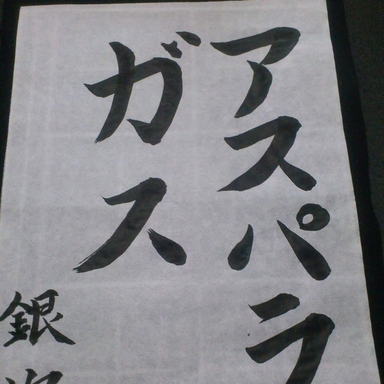 アスパラ
ガス
銀